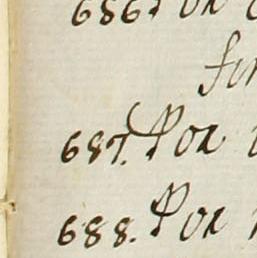 686. Por
687. Por
688. Por